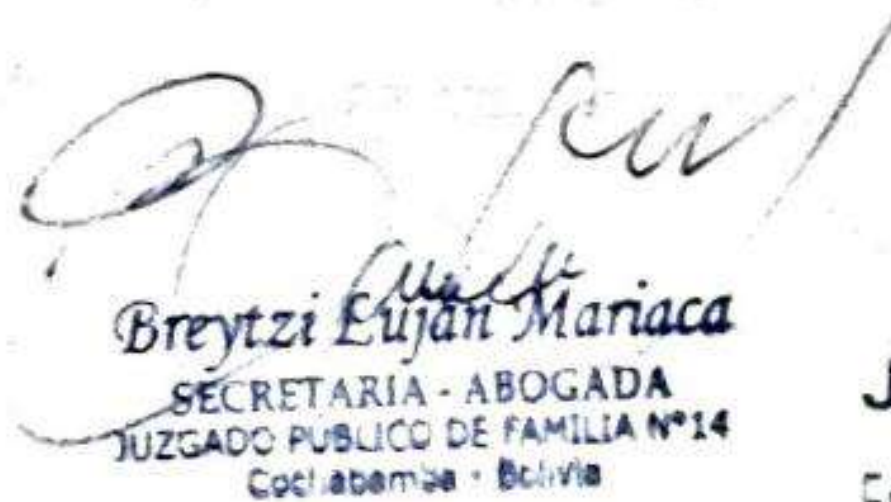 Breytzi Luján Mariaca
SECRETARIA - ABOGADA
JUZGADO PUBLICO DE FAMILIA Nº14
Cochabamba - Bolivia